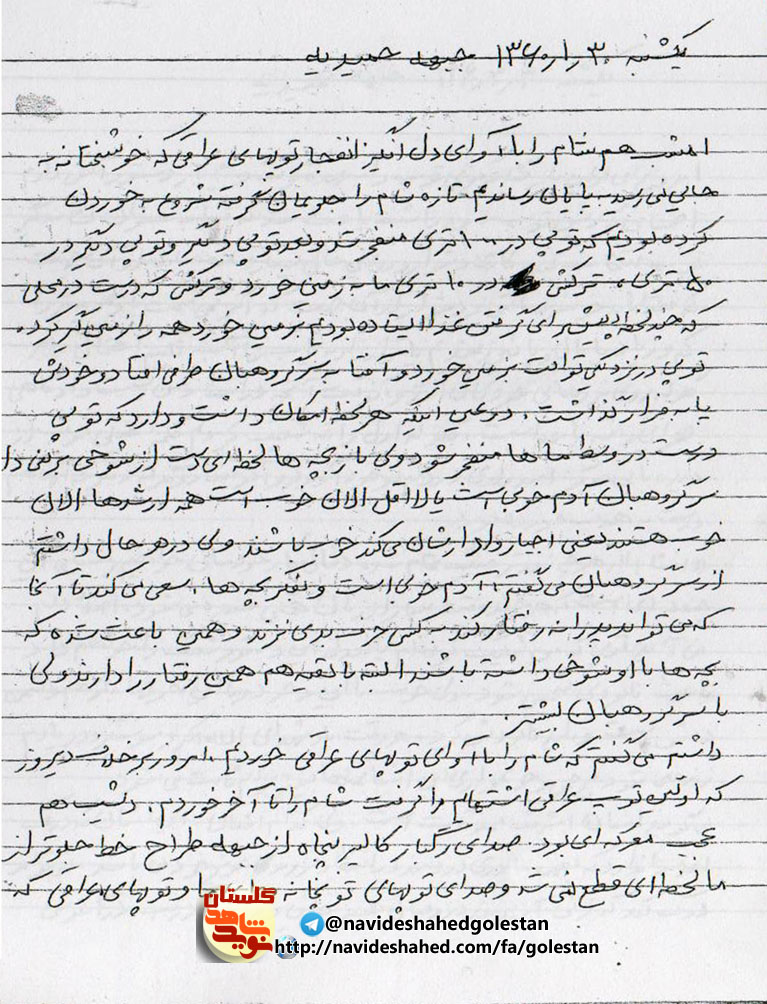 یکشنبه ۱۳۶۰/۱/۳۰ جبهه حمیدیه
امشب هم شام را با آوای دل انگیز انفجار توپهای عراقی که خوشبختانه به
جایی نمی رسید بپایان رساندیم. تازه شام را جویمان گرفته شروع به خوردن
کرده بودیم که توپی در ۱۰۰ متری منفجر شد و بعد توپی دیگر و توپی دیگر در
۵۰ متری، ترکش در ۱۰ متری ما به زمین خورد و ترکش که درست در محلی
که چند لحظه پیش برای گرفتن غذا ایستاده بودیم بزمین خورد همه را زمین گیر کرد.
توپی در نزدیکی توالت بزمین خورد و آفتابه سرگروهبان طرفی افتاد و خودش
پا به فرار گذاشت. در عین اینکه هر لحظه امکان داشت و دارد که توپی
درست در وسط ماها منفجر شود ولی باز بچه ها لحظه ای دست از شوخی بر نمی دا
سرگروهبان آدم خوبی است یا لااقل الان خوب است همه ارشدها الان
خوب هستند یعنی اجبار وادارشان می کند خوب باشند. ولی در هر حال داشتم
از سرگروهبان می گفتم، آدم خوبی است و بفکر بچه ها. سعی می کند تا آنجا
که می تواند پدرانه رفتار کند. به کسی حرف بدی نزند و همین باعث شده که
بچه ها با او شوخی داشته باشند البته با بقیه هم همین رفتار را دارند ولی
با سرگروهبان بیشتر.
داشتم می گفتم که شام را با آوای توپهای عراقی خوردیم. امروز برخلاف دیروز
که اولین توپ عراقی اشتهایم را گرفت شام را تا آخر خوردم. دیشب هم
عجب معرکه ای بود. صدای رگبار کالیبر پنجاه از جبهه طراح خط جلوتر از
ما لحظه ای قطع نمی شد و صدای توپهای توپخانه ما و توپهای عراقی که
گلستان
نوید شاهد
@navideshahedgolestan
http://navideshahed.com/fa/golestan